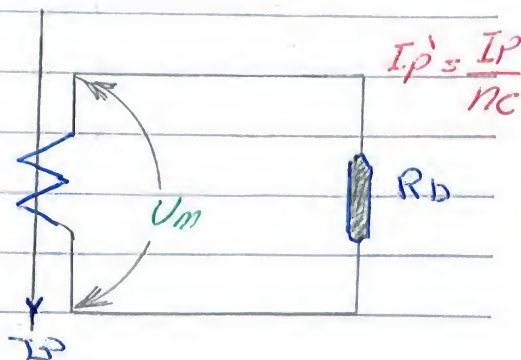 Ip' = Ip / nc
Um
Rb
Ip